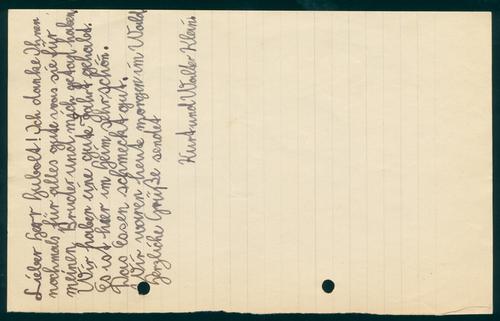 Lieber Herr Hubolt! Ich danke Ihnen
nochmals für alles gute was sie für
meinen Bruder und mich getan haben.
Wir haben eine gute Fahrt gehabt.
Es ist hier im Heim sehr schön.
Das Essen schmeckt gut.
Wir waren heute morgen im Wald.
Herzliche Grüße sendet
Kurt und Walter